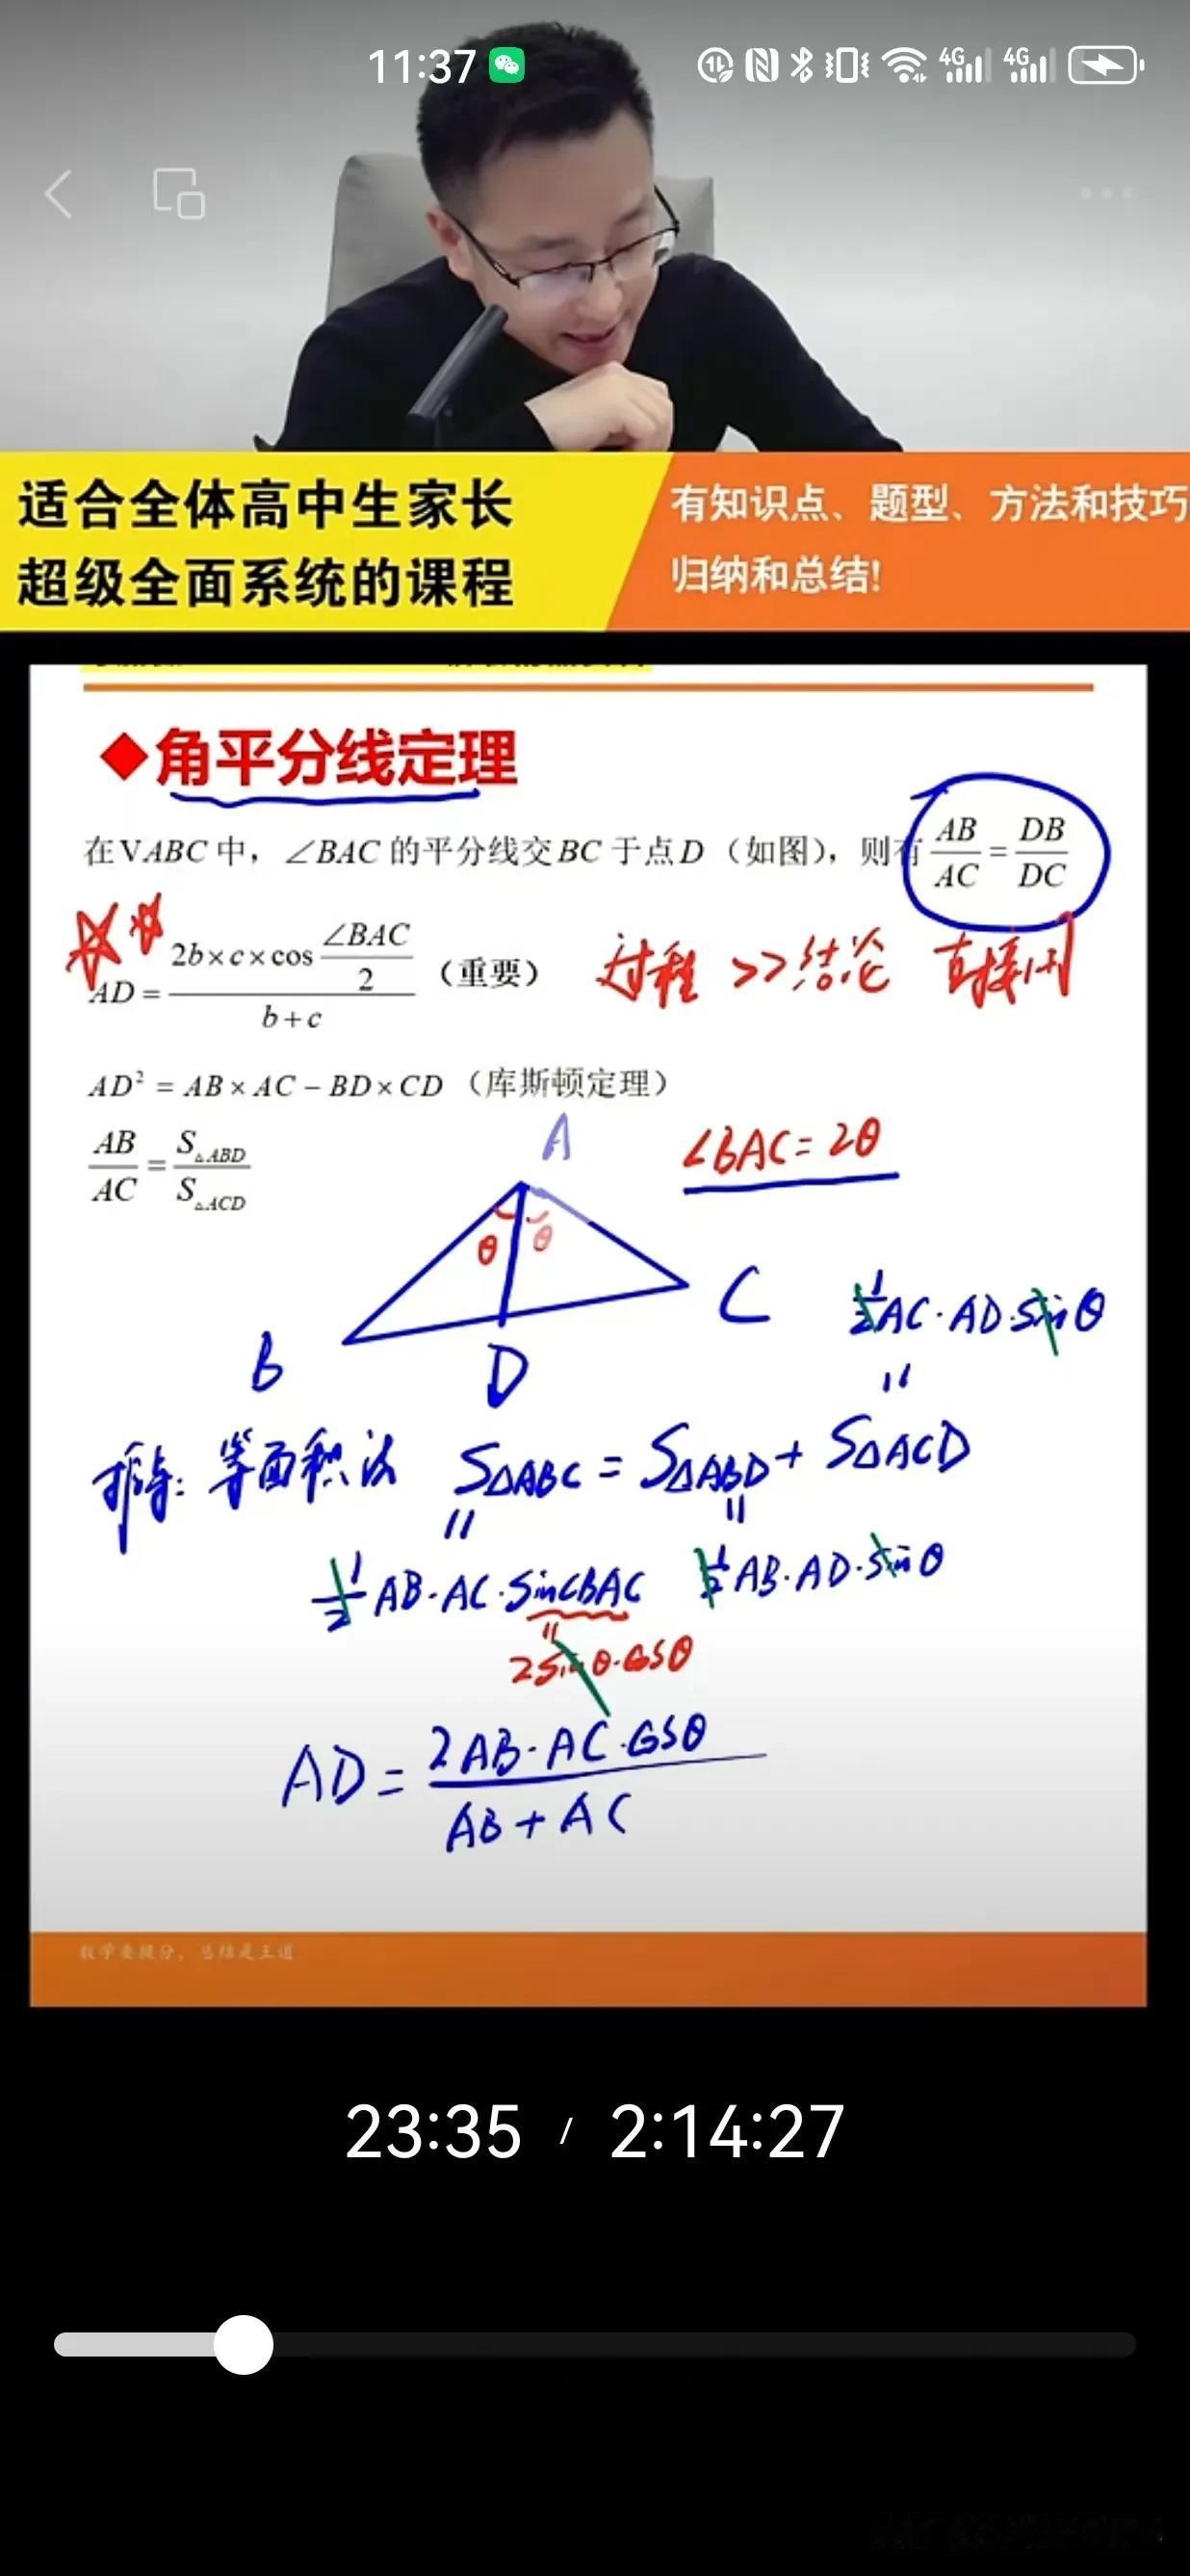 11:37
4G 4G
适合全体高中生家长
超级全面系统的课程
有知识点、题型、方法和技巧
归纳和总结!
◆角平分线定理
在VABC中，∠BAC的平分线交BC于点D（如图），则有 AB/AC = DB/DC
AD = (2b×c×cos ∠BAC/2)/(b+c)（重要）
过程 >> 结论 直接用
AD² = AB×AC－BD×CD（库斯顿定理）
AB/AC = S△ABD/S△ACD
A
∠BAC = 2θ
θ θ
C
B
D
1/2 AC·AD·sinθ
=
推导: 等面积法 S△ABC = S△ABD + S△ACD
= =
1/2 AB·AC·Sin∠BAC 1/2 AB·AD·sinθ
=
2sinθ·cosθ
AD = 2AB·AC·cosθ/AB+AC
数学要提分，总结是王道
23:35 / 2:14:27